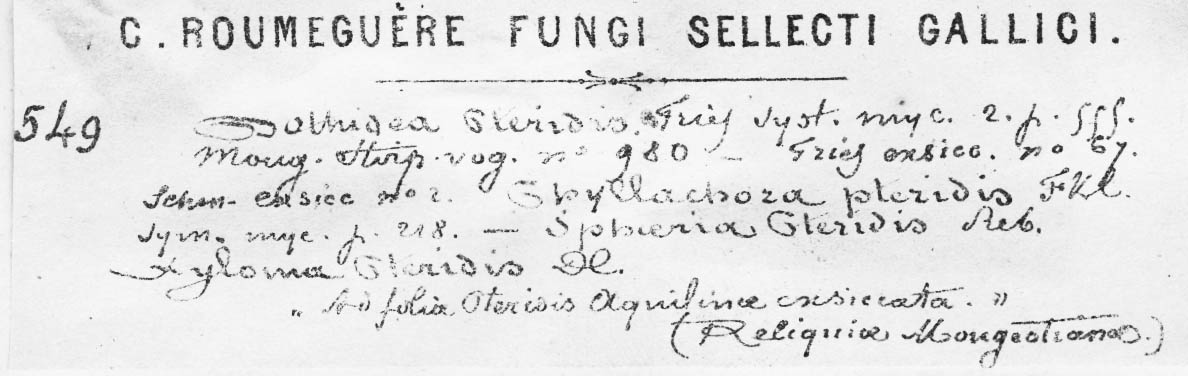 C. ROUMEGUÈRE FUNGI SELLECTI GALLICI.
549 Dothidea Pteridis, Fries Syst. myc. 2. p. 555.
Moug. Stirp. vog. no 980 – Fries exsicc. no 67.
Schm. exsicc no 2. Phyllachora pteridis FKl.
Sym. myc. p. 218. – Sphæria Pteridis Reb.
Xyloma Pteridis DC.
„ Ad folia Pteridis Aquilinæ exsiccata. "
(Reliquiæ Mougeotianæ.)